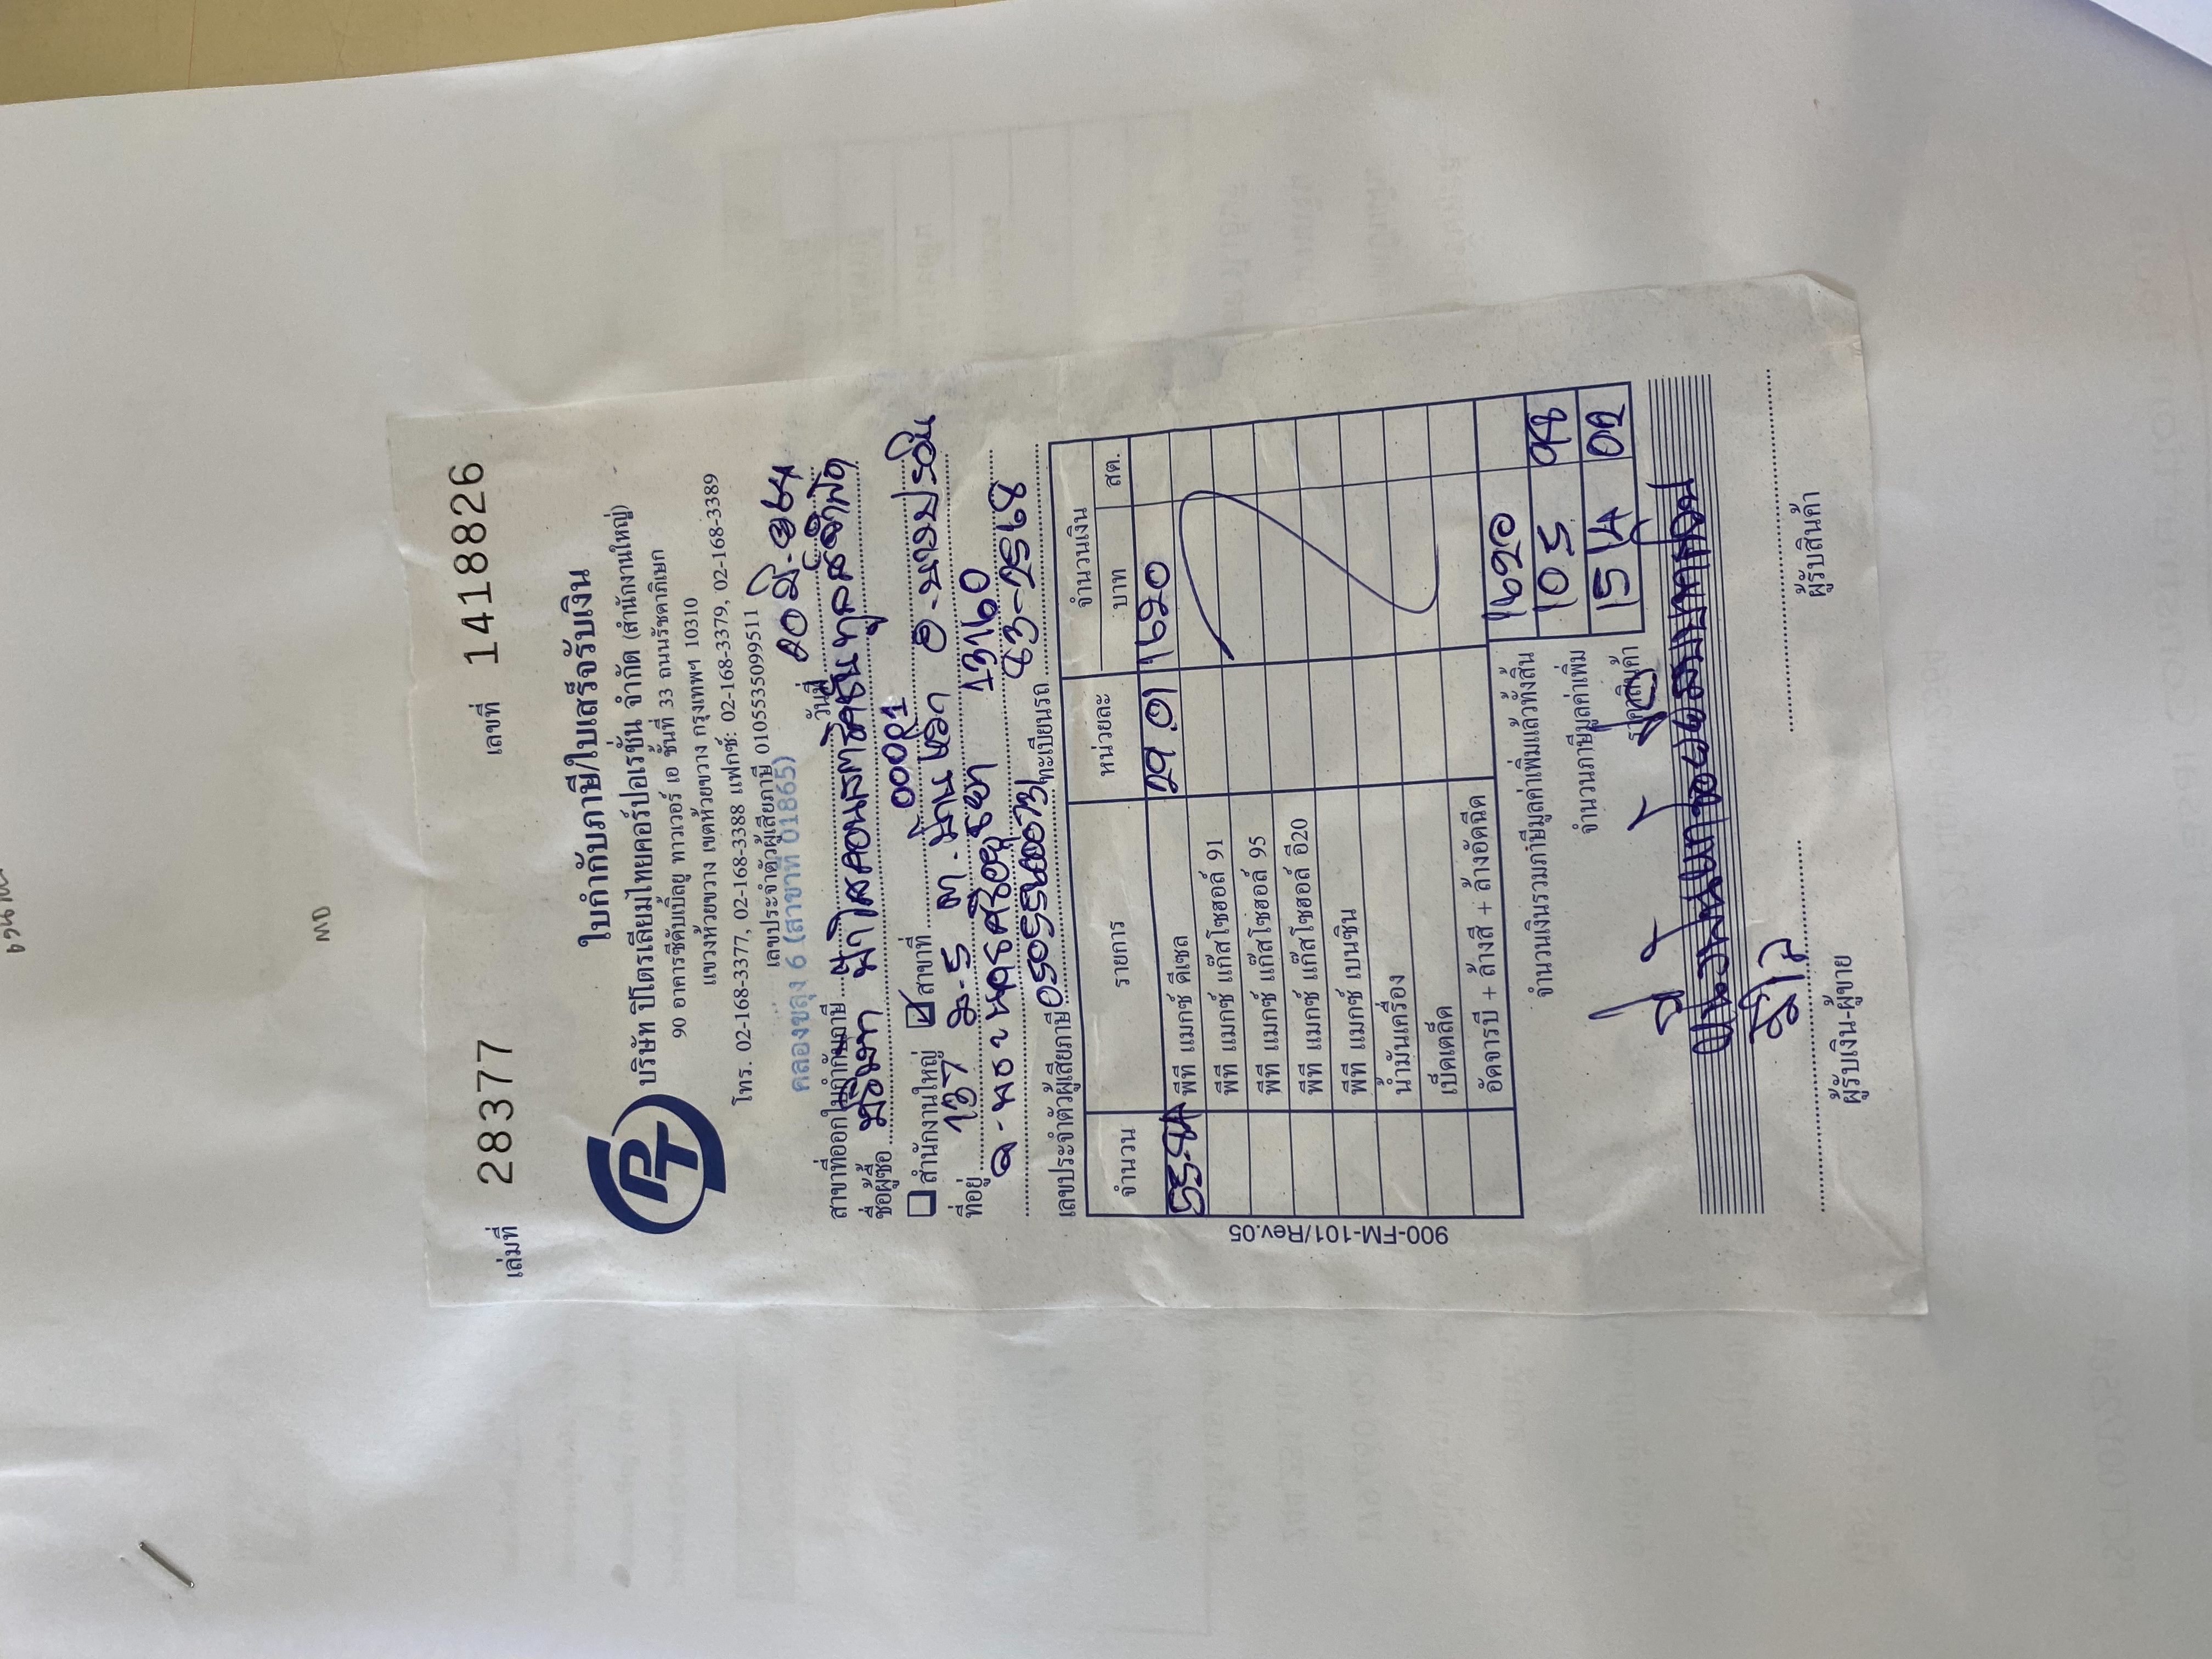 MD
เล่มที่ 28377 เลขที่ 1418826
ใบกำกับภาษี/ใบเสร็จรับเงิน
PT
บริษัท ปิโตรเลียมไทยคอร์ปอเรชั่น จำกัด (สำนักงานใหญ่)
90 อาคารซีดับเบิ้ลยู ทาวเวอร์ เอ ชั้นที่ 33 ถนนรัชดาภิเษก
แขวงห้วยขวาง เขตห้วยขวาง กรุงเทพฯ 10310
โทร. 02-168-3377, 02-168-3388 แฟกซ์: 02-168-3379, 02-168-3389
เลขประจำตัวผู้เสียภาษี 0105535099511
คลองขลุง 6 (สาขาที่ 01865)
สาขาที่ออกใบกำกับภาษี วันที่ 20 มิ.
ชื่อผู้ซื้อ บริษัท คอนสตรัคชั่น ทูลส์ จำกัด
สำนักงานใหญ่ สาขาที่ 00001
ที่อยู่ 137 ม.5 ต.บ้านหว้า อ.บางปะอิน
จ.พระนครศรีอยุธยา 13160
เลขประจำตัวผู้เสียภาษี ทะเบียนรถ 83-2568
จำนวน รายการ หน่วยละ จำนวนเงิน
บาท สต.
55.84 พีที แมกซ์ ดีเซล 29.01 1620
พีที แมกซ์ แก๊สโซฮอล์ 91
พีที แมกซ์ แก๊สโซฮอล์ 95
พีที แมกซ์ แก๊สโซฮอล์ อี20
พีที แมกซ์ เบนซิน
น้ำมันเครื่อง
เบ็ดเตล็ด
อัดจารบี + ล้างสี + ล้างอัดฉีด
900-FM-101/Rev.05
จำนวนเงินรวมภาษีมูลค่าเพิ่มแล้วทั้งสิ้น 1620
จำนวนภาษีมูลค่าเพิ่ม 105 98
ราคาสินค้า 1514 02
หนึ่งพันหกร้อยยี่สิบบาทถ้วน
ผู้รับเงิน-ผู้ขาย ผู้รับสินค้า